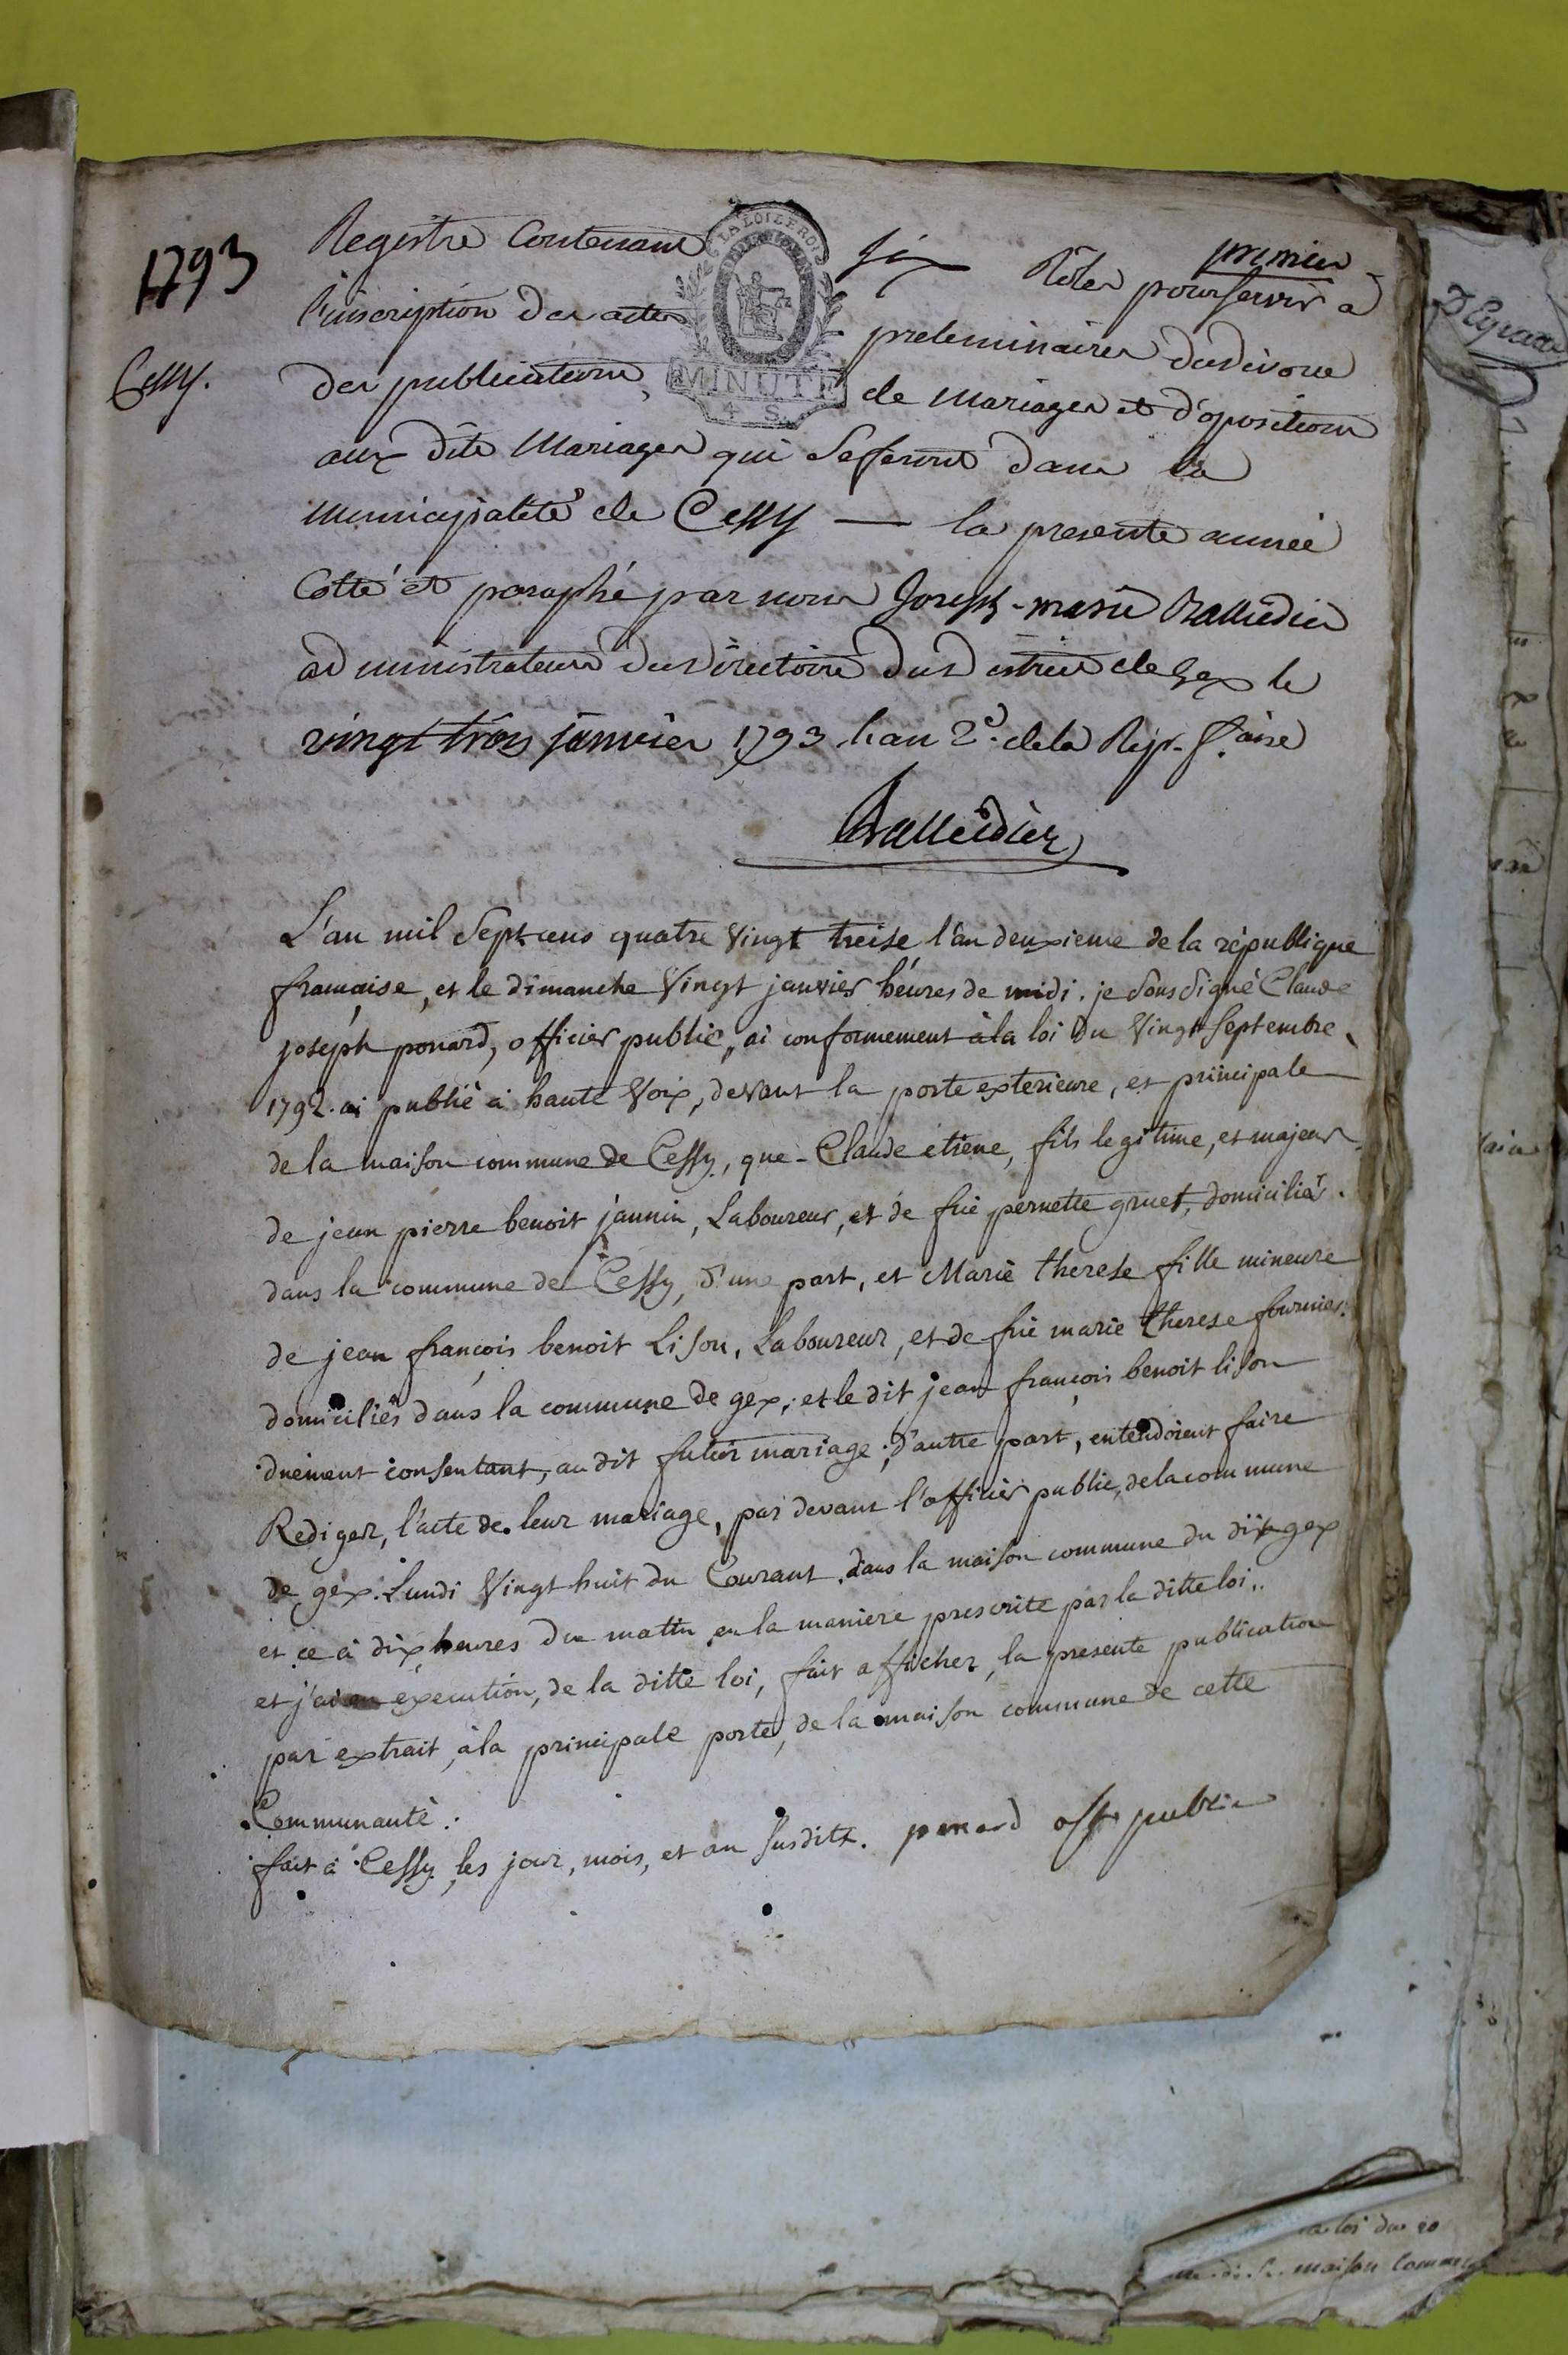 premier
1793
Registre Contenant six Rôles pour servir à
LA LOI LE ROI
l'inscription des actes preleminaires du divorce
Cessy.
des publications de Mariages et d'opositions
MINUTE
4 S.
aux dits Mariages qui se feront dans la
municipalité de Cessy — la presente année
Cotté et paraphé par nous Joseph-marie
administrateur du Directoire du District de Gex le
vingt trois janvier 1793 l'an 2e. de la Rep. f.aise
L'an mil Sept cens quatre Vingt treise l'an deuxieme de la république
francaise, et le dimanche Vingt janvier héures de midi. je Sous Signé Claude
joseph ponard, officier public, ai conformement à la loi du Vingt Septembre
1792. ai publié à haute Voix, devant la porte exterieure, et principale
de la maison commune de Cessy, que Claude étiene, fils legitime, et majeur
de jean pierre benoit jannin, Laboureur, et de fue pernette gruet, domiciliés.
dans la commune de Cessy, d'une part, et Marie therese fille mineure
de jean françois benoit Lison, Laboureur, et de fue marie therese fournier.
domiciliés dans la commune de gex, et le dit jean françois benoit lison
duement consentant, au dit futur mariage; d'autre part, entendoient faire
Rediger, l'acte de leur mariage, par devant l'officier public, de la commune
de gex. Lundi Vingt huit du Courant, dans la maison commune du dit gex
et ce à dix heures du matin en la maniere prescrite par la ditte loi..
et j'ai en execution, de la ditte loi, fait afficher, la presente publication
par extrait, à la principale porte, de la maison commune de cette
Communauté.
fait à Cessy, les jour, mois, et an susdits. ponard off. public
a loi du 20
maison Commune